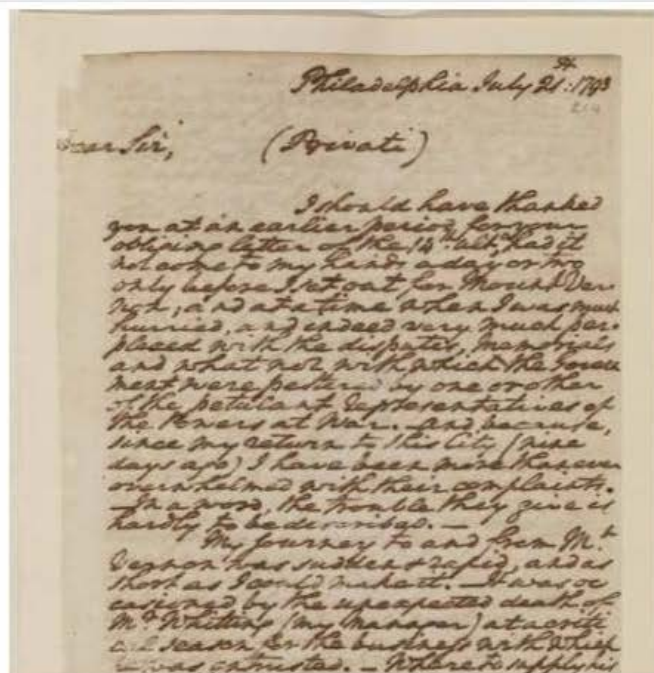 Philadelphia July 21st: 1793
214
Dear Sir, (Private)
I should have thanked
you at an earlier period for your
obliging letter of the 14th ult, had it
not come to my hands a day or two
only before I set out for Mount Ver-
non; and at a time when I was much
hurried, and indeed very much per-
plexed with the disputes, memorials
and what not with which the Govern
ment were pestered by one or other
of the petulant representatives of
the Powers at War. – And because,
since my return to this City, (nine
days ago) I have been more than ever
overwhelmed with their complaints.
– In a word, the trouble they give is
hardly to be described. –
My journey to and from Mt.
Vernon was sudden & rapid, and as
short as I could make it. – It was oc
casioned by the unexpected death of
Mr Whitting (my manager) at a criti
cal season for the business with which
he was entrusted. – Where to supply his